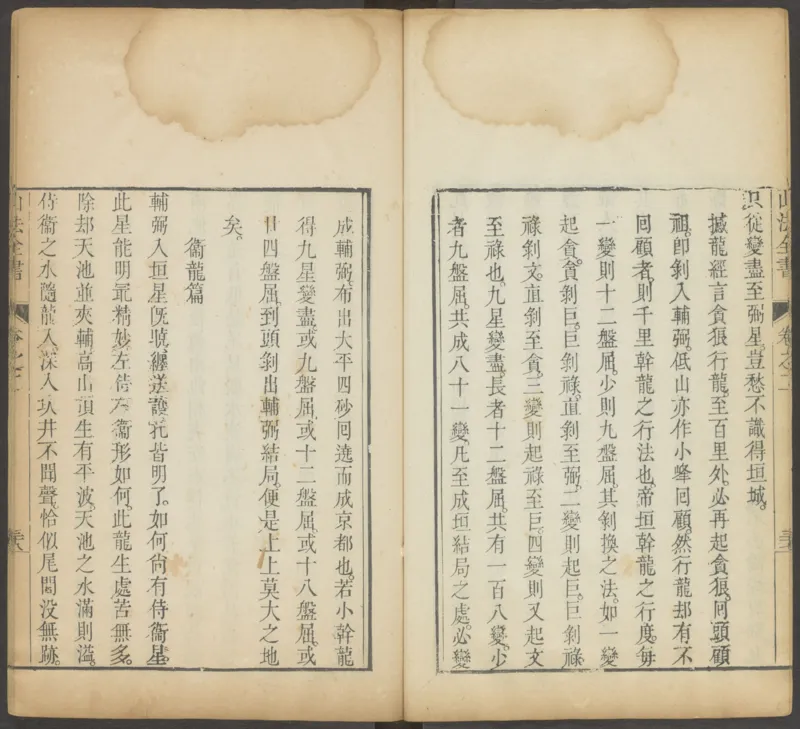 只從變盡至弼星。豈愁不識得垣城。
撼龍經言貪狼行龍。至百里外。必再起貪狼。囘頭顧
祖。即剝入輔弼。低山亦作小峰囘顧。然行龍却有不
囘顧者。則千里幹龍之行法也。帝垣幹龍之行度。每
一變則十二盤屈。少則九盤屈。其剝換之法。如一變
起貪。貪剝巨。巨剝祿。直剝至弼。二變則起巨。巨剝祿。
祿剝文。直剝至貪。三變則起祿至巨。四變則又起文
至祿也。九星變盡。長者十二盤屈。共有一百八變。少
者九盤屈。共成八十一變。凡至成垣結局之處。必變
山法全書
卷之二
成輔弼。布出大平四砂囘遶而成京都也。若小幹龍
得九星變盡。或九盤屈。或十二盤屈。或十八盤屈。或
廿四盤屈。到頭剝出輔弼結局。便是上上莫大之地
矣。
衞龍篇
輔弼入垣星旣號。纏送護托皆明了。如何尙有侍衞星。
此星能明最精妙。左侍右衞形如何。此龍生處苦無多。
除却天池並夾輔。高山頂生有平波。天池之水滿則溢。
侍衞之水隨龍入。深入坎井不聞聲。恰似尾閭没無跡。
山法全書
卷之二